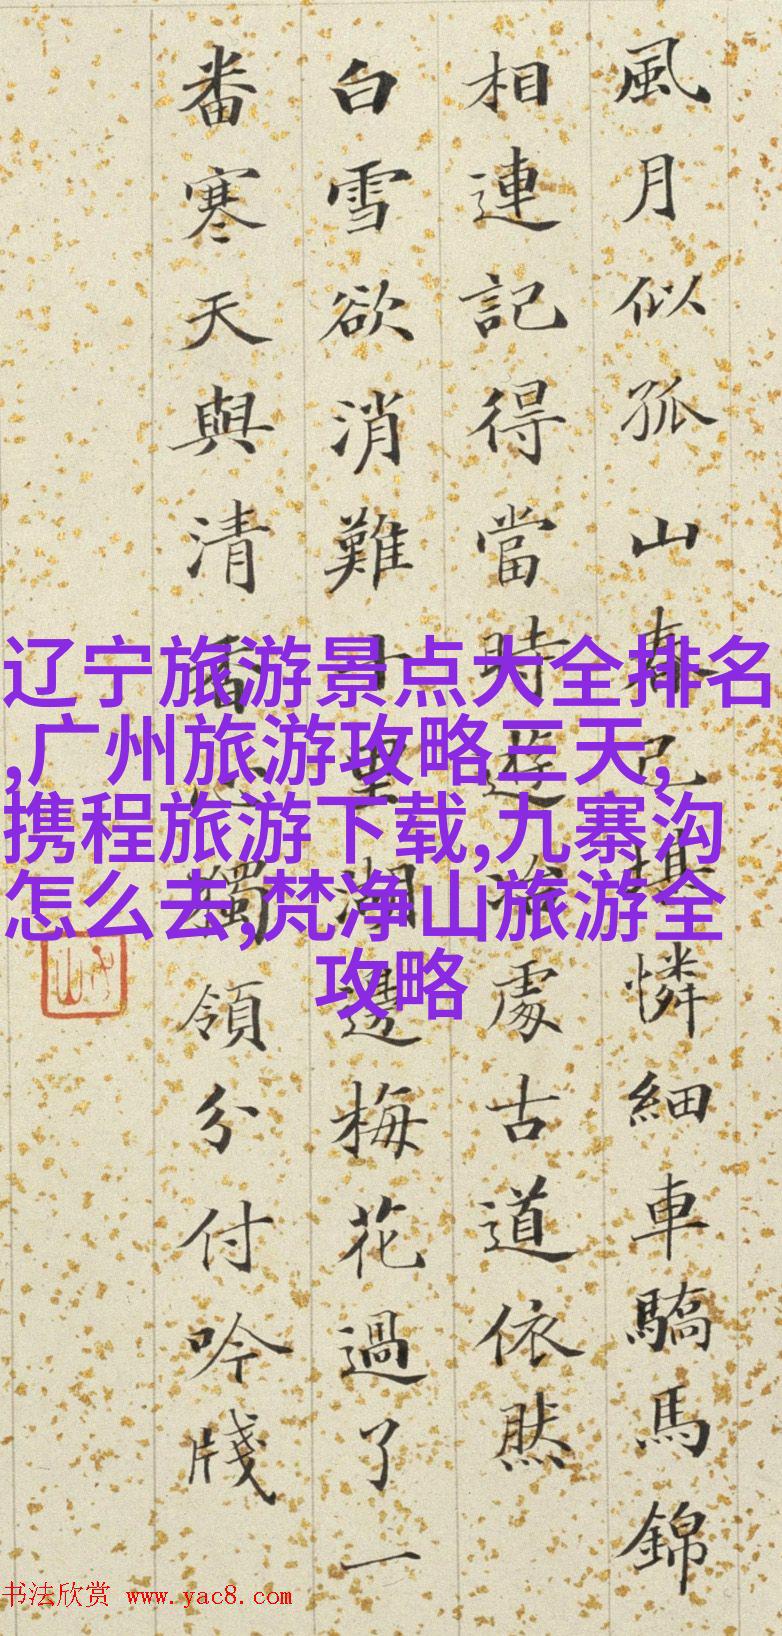 風月似孤山春己堪憐細車驕馬錦
相連記得當時遊處古道依然
白雪欲消難十里湖邊梅花過了一
番寒天與清香獨領分付吟牋
辽宁旅游景点大全排名
,广州旅游攻略三天,
携程旅游下载,九寨沟
怎么去,梵净山旅游全
攻略
书法欣赏 www.yac8.com